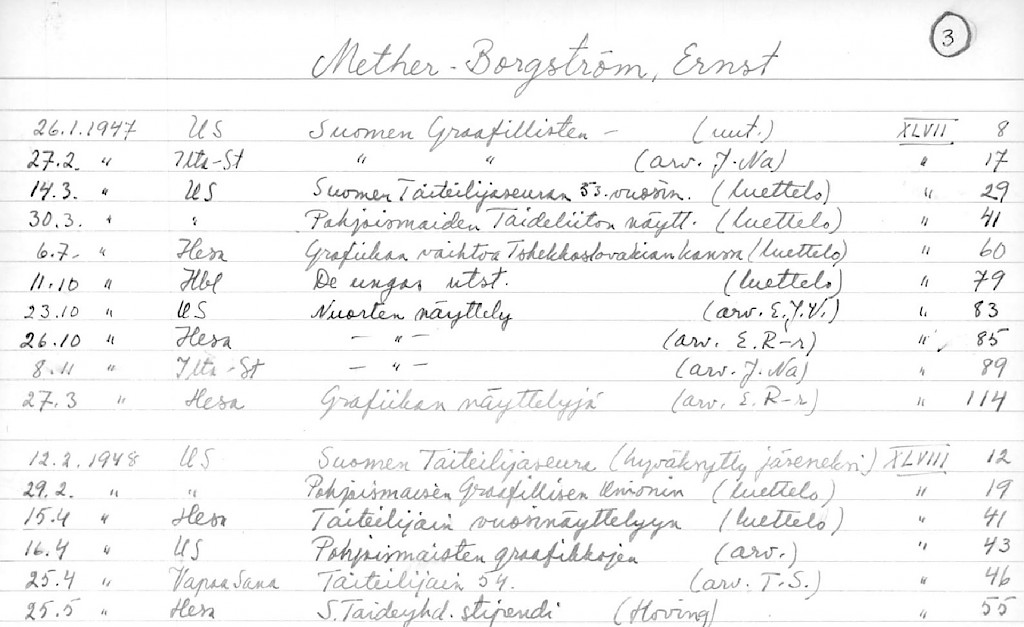 3
Mether-Borgström, Ernst
26.1.1947 US Suomen Graafillisten - (uut.) XLVII 8
27.2. " Ilta-St " " (arv. J. Na) " 17
14.3. " US Suomen Taiteilijaseuran 53. vuosin. (luettelo) " 29
30.3. " " Pohjoismaiden Taideliiton näytt. (luettelo) " 41
6.7. " Hesa Grafiikan vaihtoa Tshekkoslovakian kanssa (luettelo) " 60
11.10 " Hbl De ungas utst. (luettelo) " 79
23.10 " US Nuorten näyttely (arv. E.J.V.) " 83
26.10 " Hesa - " - (arv. E. R-r) " 85
8.11 " Ilta-St - " - (arv. J. Na) " 89
27.3 " Hesa Grafiikan näyttelyjä (arv. E. R-r) " 114
12.2.1948 US Suomen Taiteilijaseura (hyväksytty jäseneksi) XLVIII 12
29.2. " " Pohjoismaisen Graafillisen Unionin (luettelo) " 19
15.4 " Hesa Taiteilijain vuosinäyttelyyn (luettelo) " 41
16.4 " US Pohjoismaisten graafikkojen (arv.) " 43
25.4 " Vapaa Sana Taiteilijain 54. (arv. T.S.) " 46
25.5 " Hesa S. Taideyhd. stipendi (Hoving) " 55